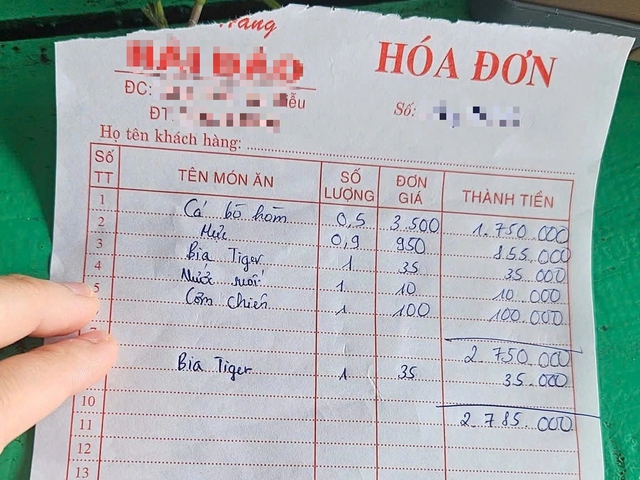 Hàng
HẢI ĐẢO
HÓA ĐƠN
ĐC: iễu
ĐT
Số:
Họ tên khách hàng:
Số TT TÊN MÓN ĂN SỐ LƯỢNG ĐƠN GIÁ THÀNH TIỀN
1 Cá bò hòm 0,5 3.500 1.750.000
2 Mực 0,9 950 855.000
3 Bia Tiger 1 35 35.000
4 Nước suối 1 10 10.000
5 Cơm chiên 1 100 100.000
2.750.000
Bia Tiger 1 35 35.000
10
11 2.785.000
12
13